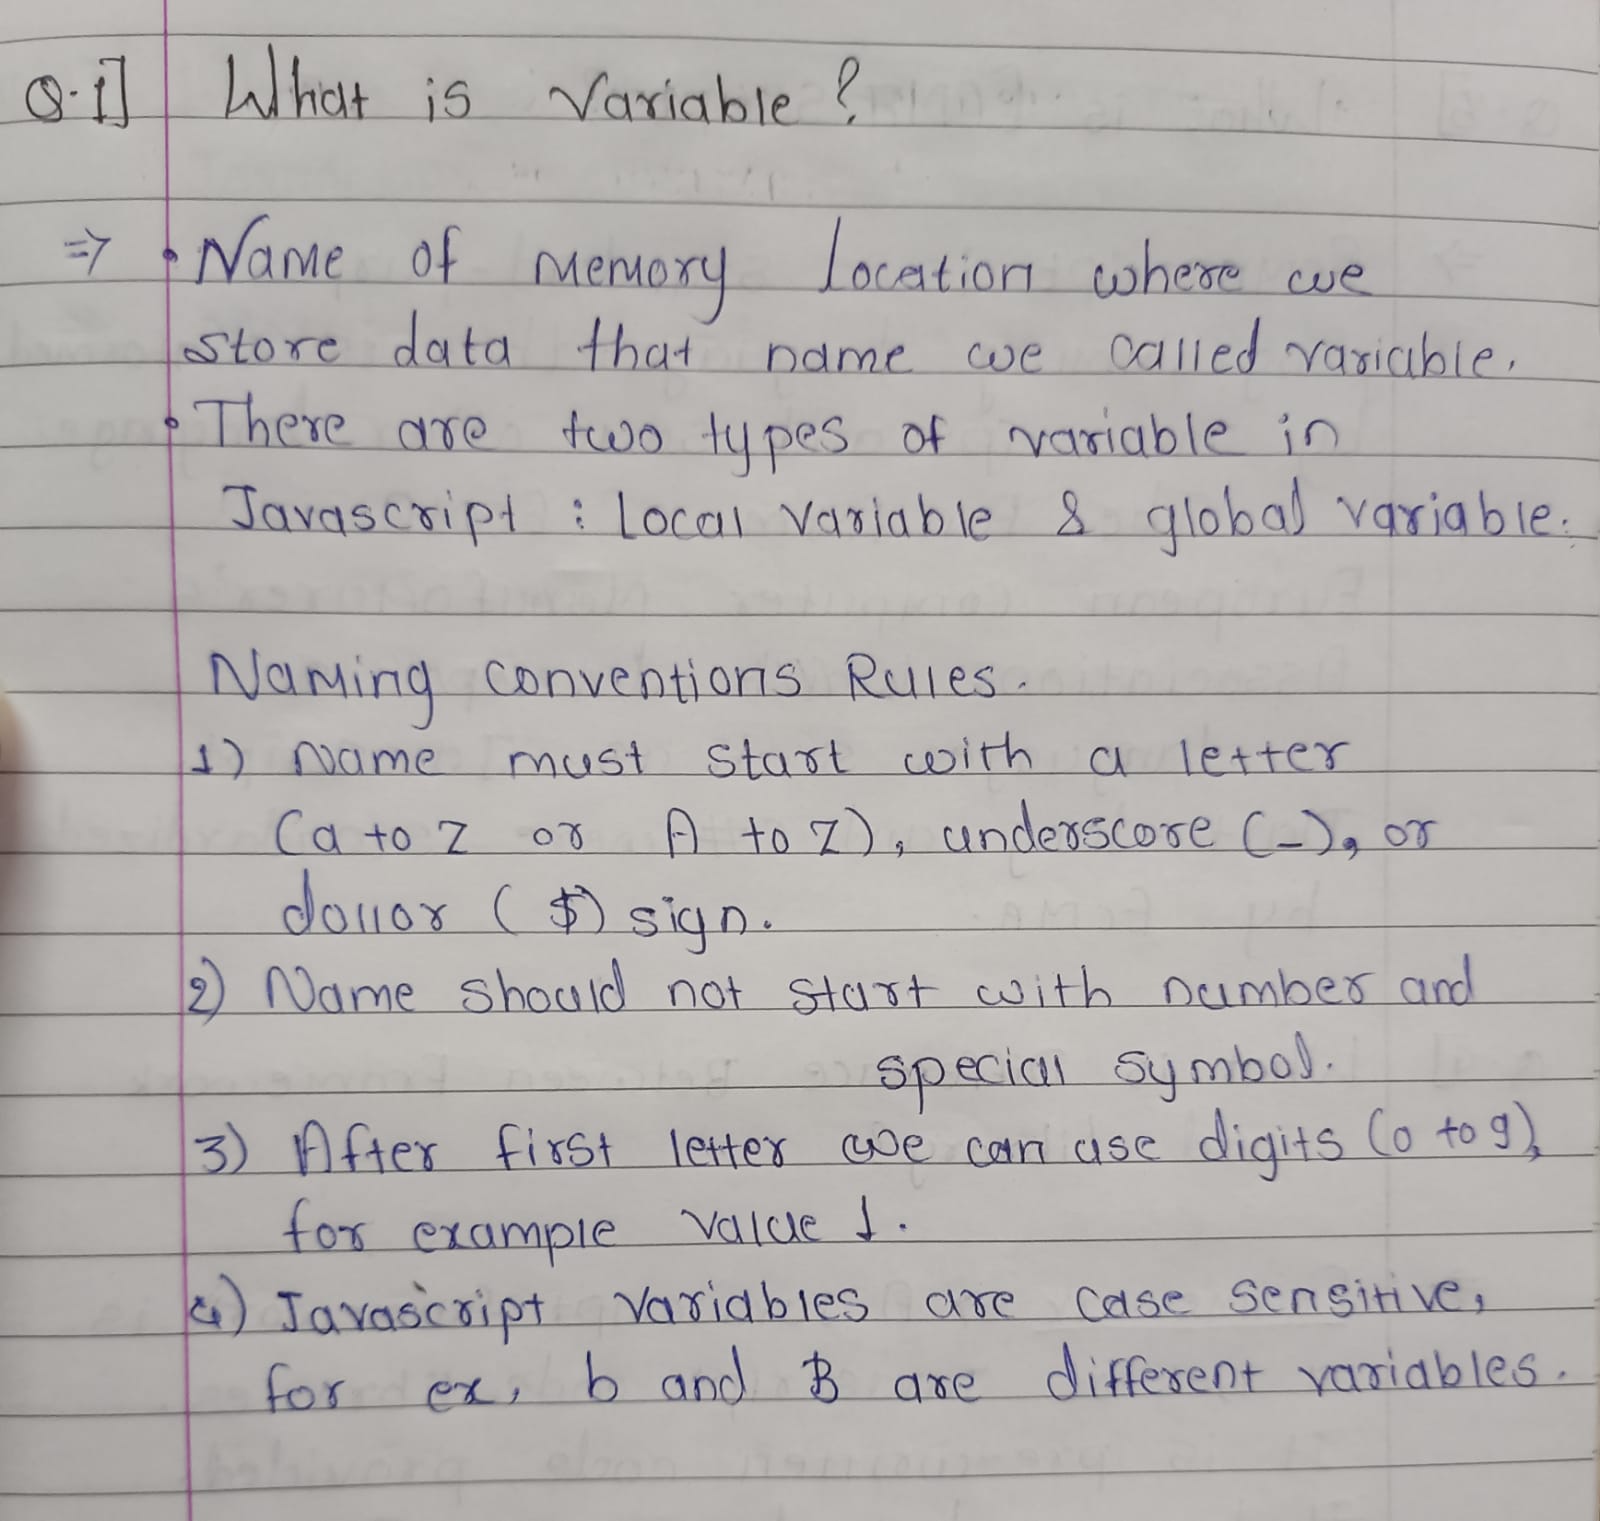 Q.1] What is Variable?
=> • Name of memory location where we
store data that name we called variable.
• There are two types of variable in
Javascript : Local Variable & global variable.
Naming conventions Rules.
1) Name must start with a letter
(a to z or A to Z), underscore (_), or
dollor ($) sign.
2) Name should not start with number and
special symbol.
3) After first letter we can use digits (0 to 9),
for example value 1.
4) Javascript variables are case sensitive,
for ex, b and B are different variables.